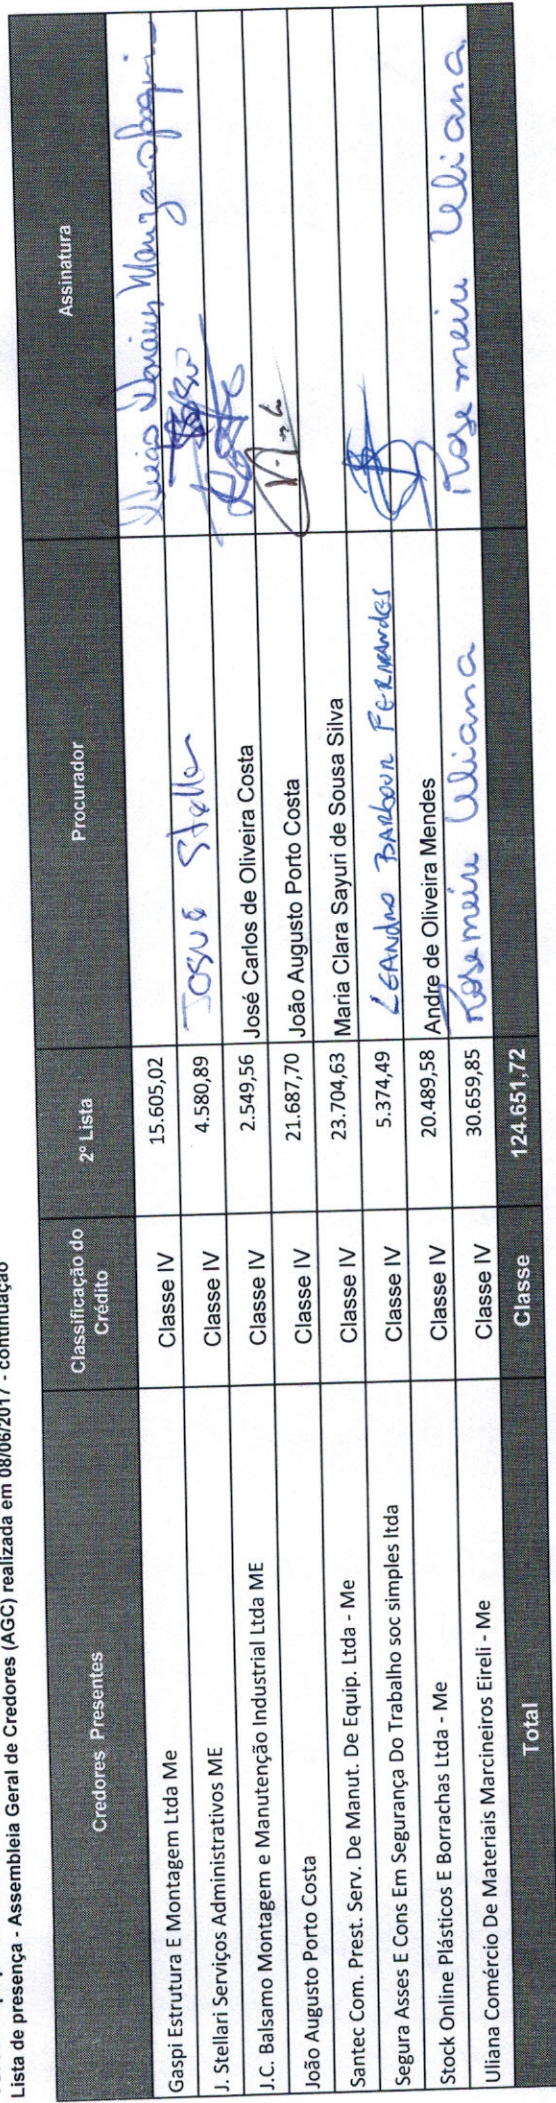 Lista de presença - Assembleia Geral de Credores (AGC) realizada em 08/06/2017 - continuação
Credores Presentes Classificação do Crédito 2º Lista Procurador Assinatura
Gaspi Estrutura E Montagem Ltda Me Classe IV 15.605,02
J. Stellari Serviços Administrativos ME Classe IV 4.580,89 Josué
J.C. Balsamo Montagem e Manutenção Industrial Ltda ME Classe IV 2.549,56 José Carlos de Oliveira Costa
João Augusto Porto Costa Classe IV 21.687,70 João Augusto Porto Costa
Santec Com. Prest. Serv. De Manut. De Equip. Ltda - Me Classe IV 23.704,63 Maria Clara Sayuri de Sousa Silva
Segura Asses E Cons Em Segurança Do Trabalho soc simples ltda Classe IV 5.374,49 Leandro Barbour Fernandes
Stock Online Plásticos E Borrachas Ltda - Me Classe IV 20.489,58 Andre de Oliveira Mendes
Uliana Comércio De Materiais Marcineiros Eireli - Me Classe IV 30.659,85 Rosemeire Uliana Rosemeire Uliana
Total Classe 124.651,72